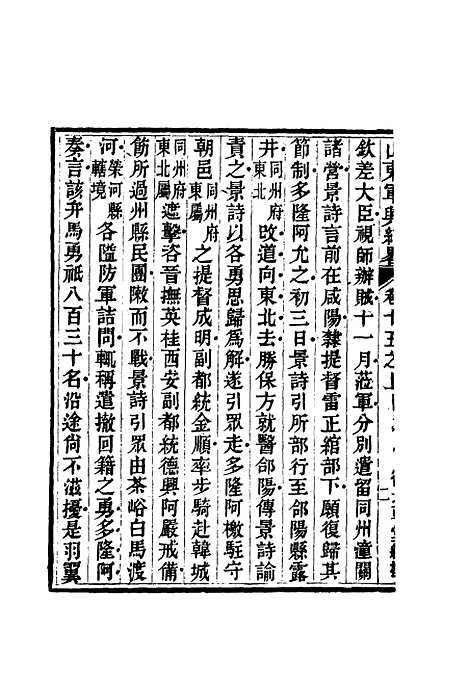 山東軍興紀畧 卷十五之上
欽差大臣視師辦賊十一月蒞軍分別遣留同州潼關
諸營景詩言前在咸陽隸提督雷正綰部下願復歸其
節制多隆阿允之初三日景詩引所部行至郃陽縣露
井同州府東北改道向東北去勝保方就醫郃陽傳景詩諭
責之景詩以各勇思歸為解遂引眾走多隆阿檄駐守
朝邑同州府東屬之提督成明副都統金順率步騎赴韓城
同州府東北屬遮擊咨晉撫英桂西安副都統德興阿嚴戒備
飭所過州縣民團陬而不戰景詩引眾由茶峪白馬渡
河榮河縣轄境各隘防軍詰問輒稱遣撤回籍之勇多隆阿
奏言該弁馬勇祇八百三十名沿途尚不滋擾是羽翼